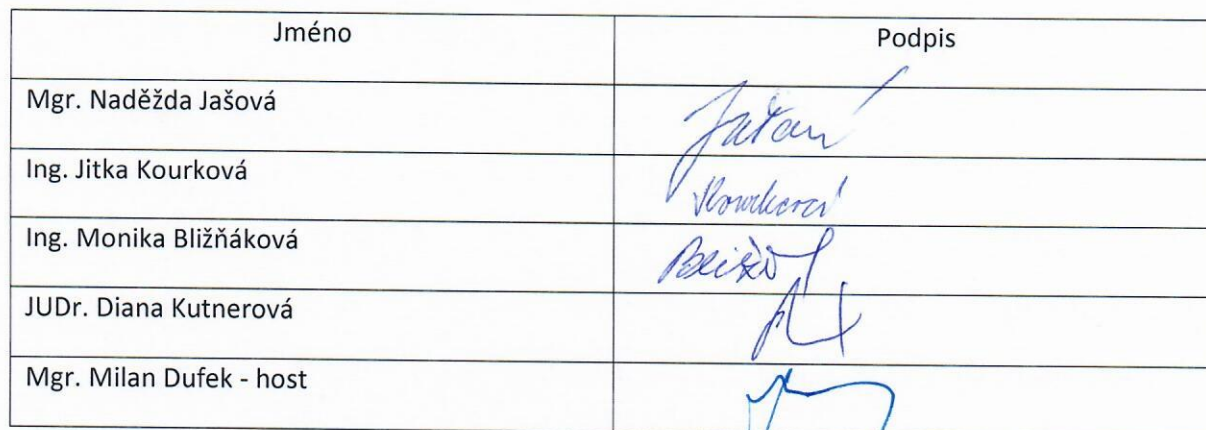 Jméno Podpis
Mgr. Naděžda Jašová
Ing. Jitka Kourková
Ing. Monika Bližňáková
JUDr. Diana Kutnerová
Mgr. Milan Dufek - host